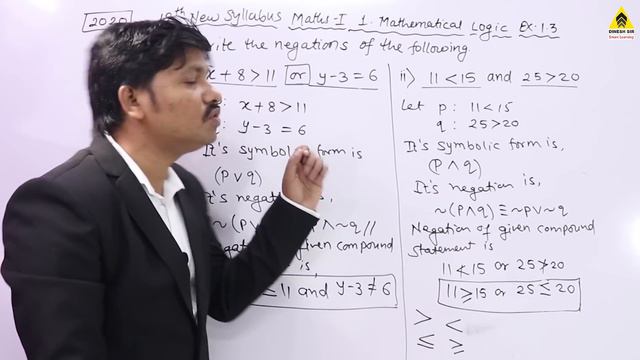 2020 th New Syllabus Maths-I 1. Mathematical Logic Ex. 1.3
the negations of the following.
x+8>11 or y-3=6
: x+8>11
: y-3=6
It's symbolic form is
(p∨q)
It's negation is,
~(p ∧~q //
given compound
is,
11 and y-3≠6
ii) 11<15 and 25>20
let p: 11<15
q: 25>20
It's symbolic form is,
(p∧q)
It's negation is,
~(p∧q) ≡ ~p∨~q
Negation of given compound
statement is
11≮15 or 25≯20
11≥15 or 25≤20
> <
≤ ≥
DINESH SIR
Smart Learning